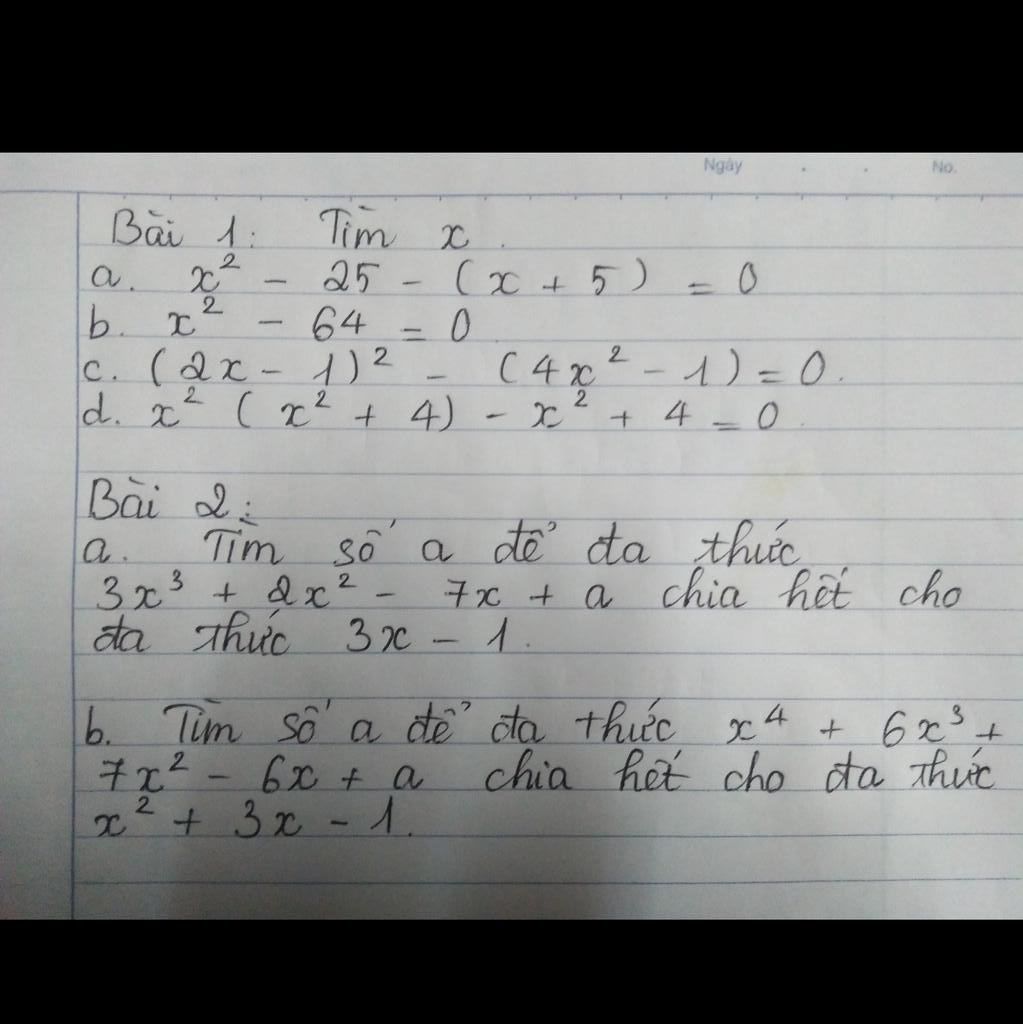 Ngày . . No.
Bài 1: Tìm x.
a. x² - 25 - (x + 5) = 0
b. x² - 64 = 0
c. (2x - 1)² - (4x² - 1) = 0.
d. x² (x² + 4) - x² + 4 = 0.
Bài 2:
a. Tìm số a để đa thức
3x³ + 2x² - 7x + a chia hết cho
đa thức 3x - 1.
b. Tìm số a để đa thức x⁴ + 6x³ +
7x² - 6x + a chia hết cho đa thức
x² + 3x - 1.